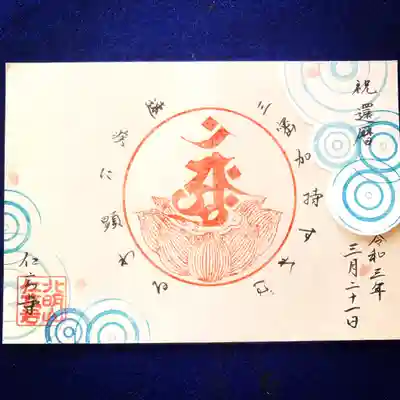 祝 還暦
令和三年
三月二十一日
三密加持すれば
速疾に顕わる